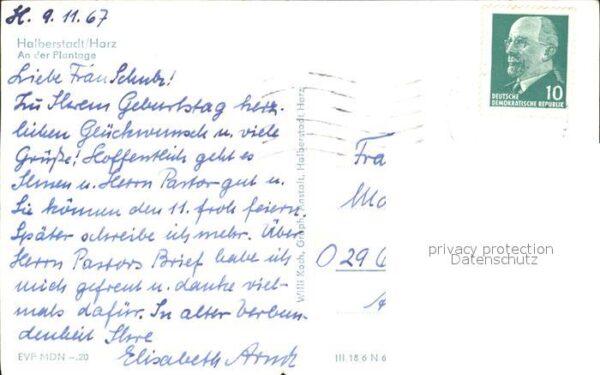 H. 9.11.67
Halberstadt/Harz
An der Plantage
Liebe Frau Schulz!
Zu Ihrem Geburtstag herz-
lichen Glückwunsch u. viele
Grüße! Hoffentlich geht es
Ihnen u. Herrn Pastor gut u.
Sie können den 11. froh feiern.
Später schreibe ich mehr. Über
Herrn Pastors Brief habe ich
mich gefreut u. danke viel-
mals dafür. In alter Verbun-
denheit Ihre
Elisabeth
EVP MDN –.20
Willi Koch, Graph. Anstalt, Halberstadt Harz
III 18 6 N 6
10
DEUTSCHE
DEMOKRATISCHE REPUBLIK
Fra
O 29
privacy protection
Datenschutz